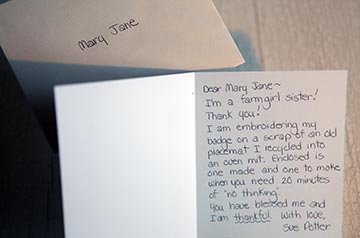 Mary Jane
Dear Mary Jane~
I'm a farmgirl sister!
Thank you!
I am embroidering my
badge on a scrap of an old
placemat I recycled into
an oven mit. Enclosed is
one made and one to make
when you need 20 minutes
of "no thinking"
you have blessed me and
I am thankful. with love,
Sue Potter